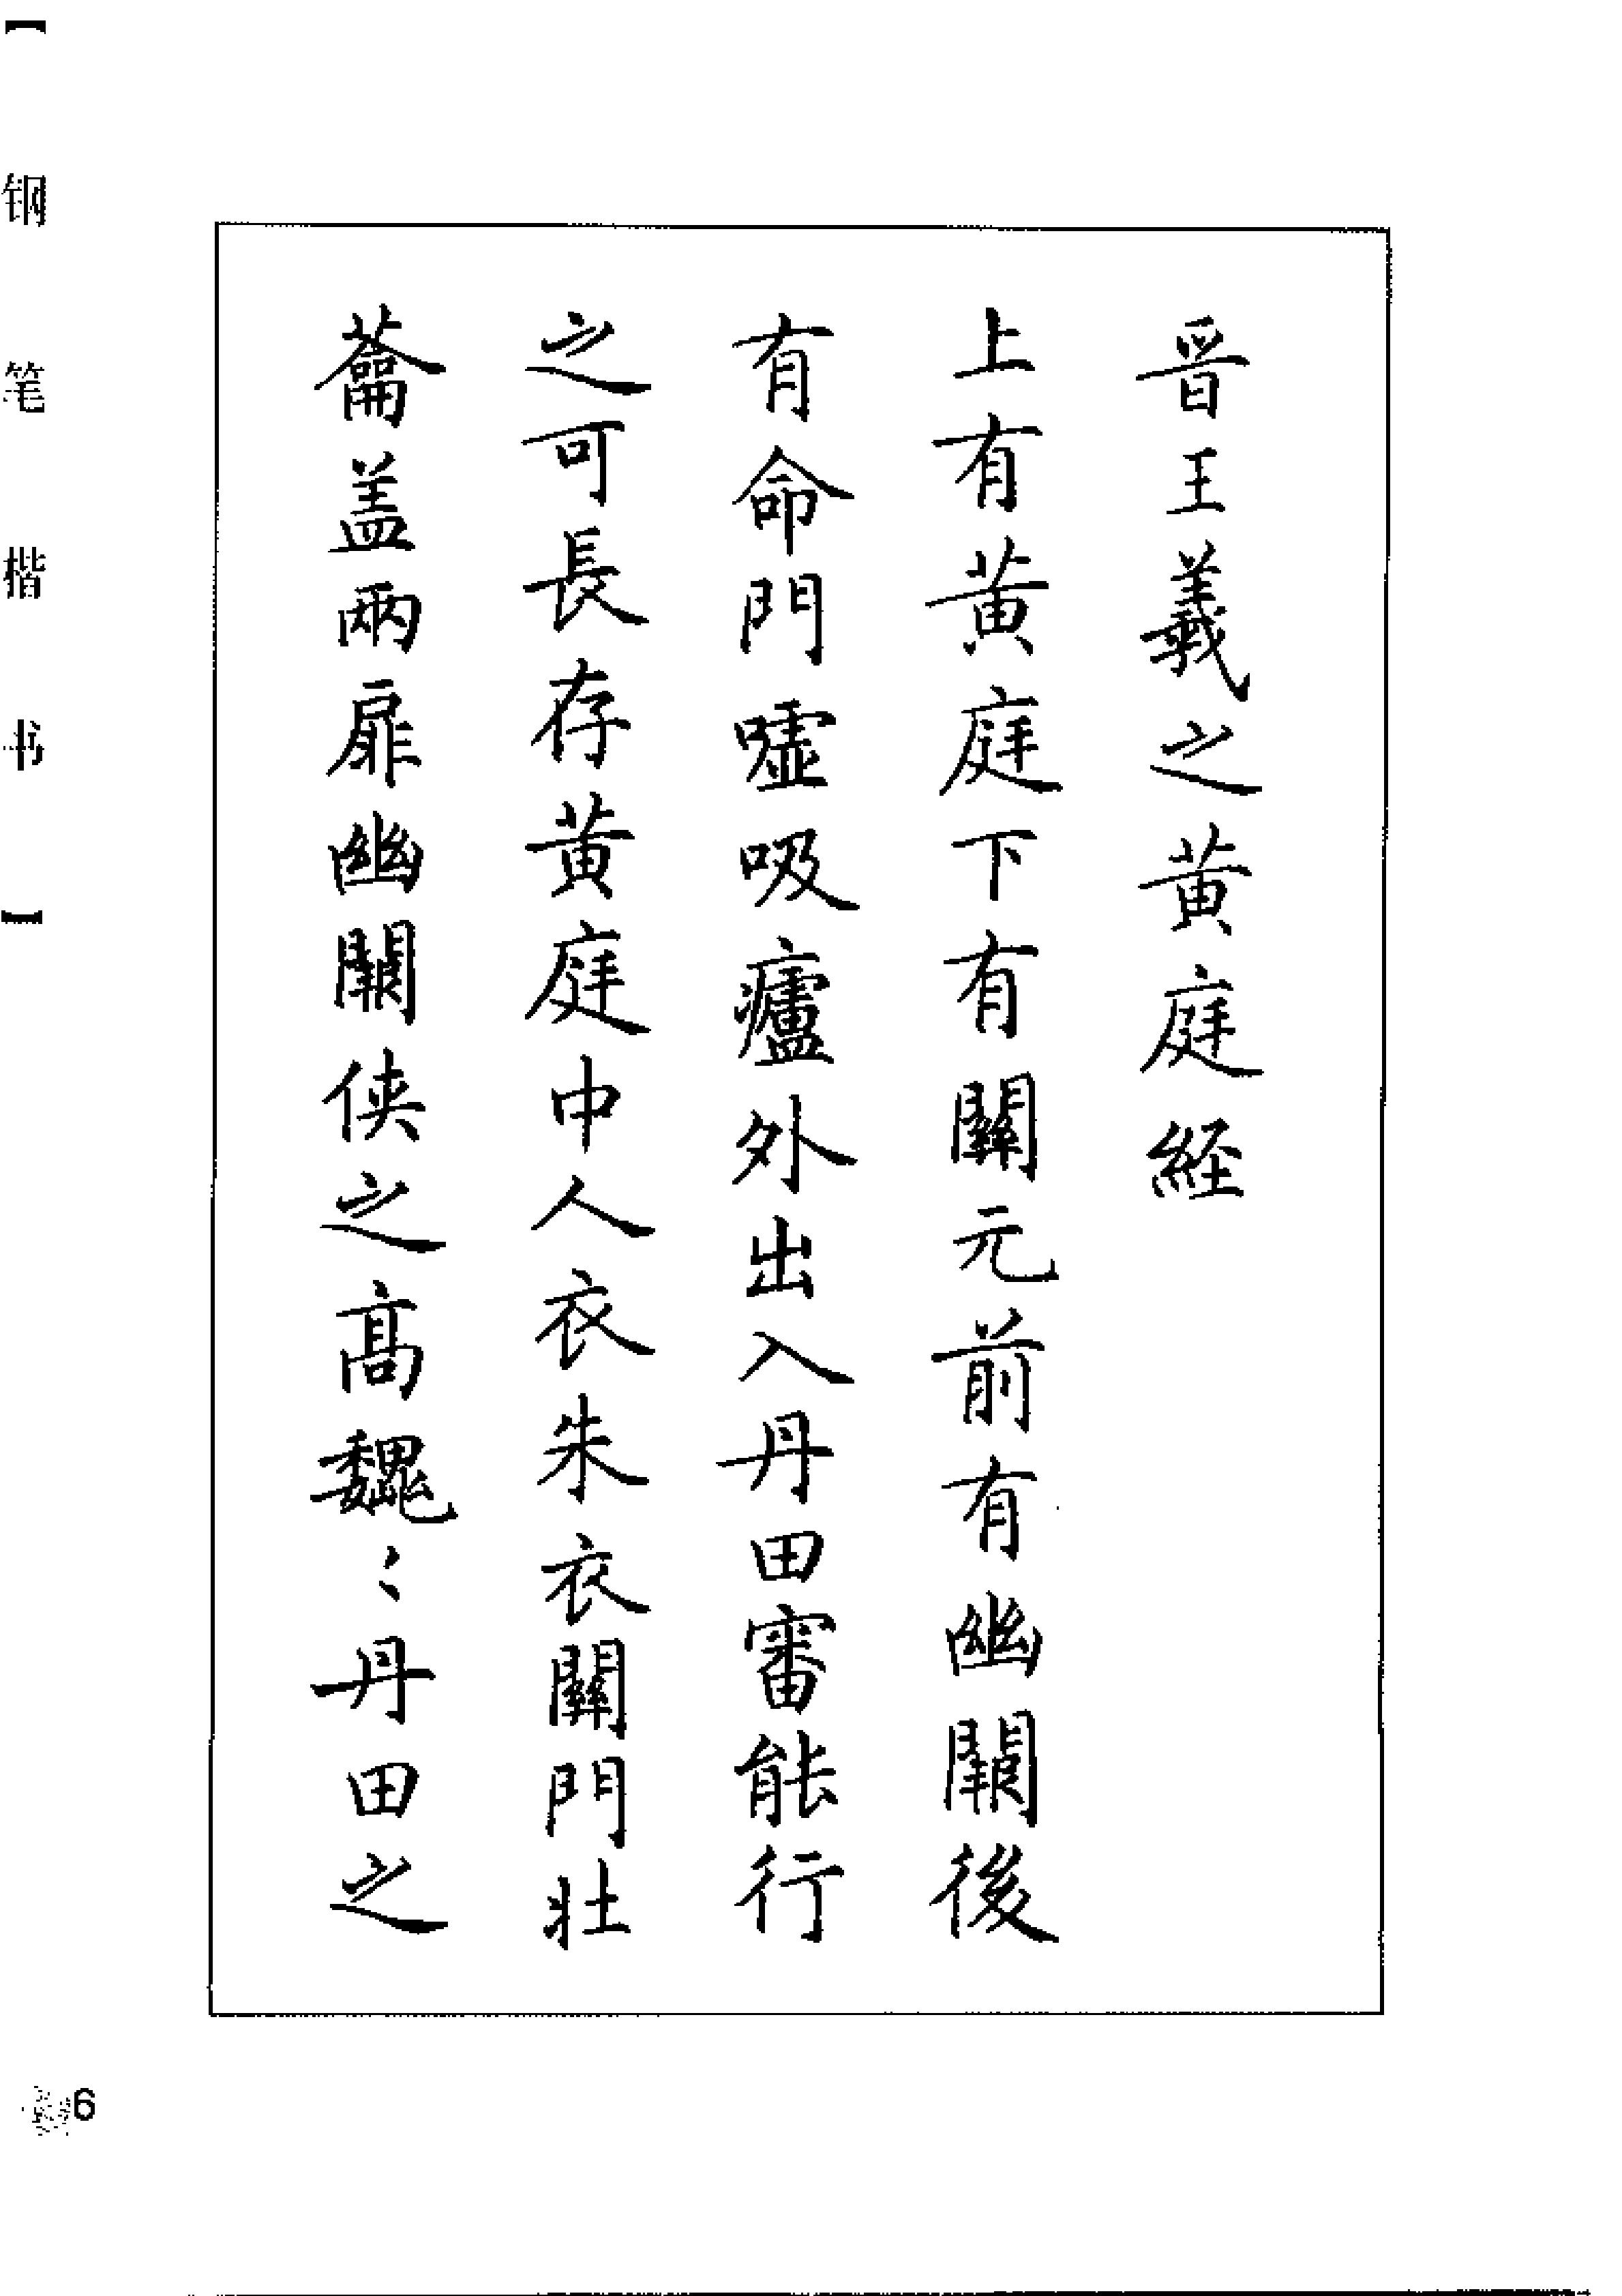 【钢笔楷书】
晋王羲之黄庭経
上有黄庭下有關元前有幽闕後
有命門噓吸廬外出入丹田審能行
之可長存黄庭中人衣朱衣關門壯
蘥盖兩扉幽闕俠之高巍〻丹田之
6